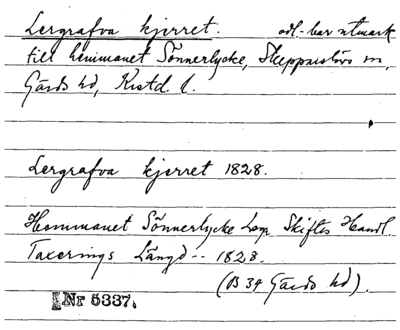 Lergrafva kjerret. odl.-bar utmark
till hemmanet Sönnerlycke, Skepparslövs sn,
Gärds hd, Kristd. l.
Lergrafva kjerret 1828.
Hemmanet Sönnerlycke Lap. Skiftes Handl.
Taxerings Längd -- 1828.
(B 34 Gärds hd).
Nr 5337.